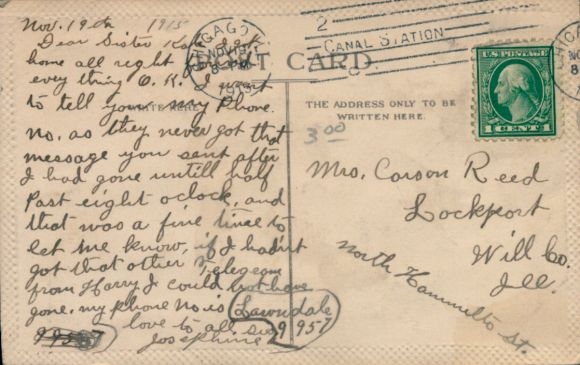 Nov. 19th 1915
Dear Sister Kate I got
home all right and
every thing O.K. I want
to tell you my Phone
no, as they never got that
message you sent after
I had gone untill half
Past eight oclock, and
that was a fine time to
let me know, if I hadn't
got that other Telegram
from Harry I could not have
gone. my phone no. is Lawndale
9957
love to all sis
Josephine
CHICAGO
NOV 19
1915
2
CANAL STATION
POST CARD
WRITE HERE
THE ADDRESS ONLY TO BE
WRITTEN HERE.
3.00
U.S. POSTAGE
1 CENT 1
Mrs. Carson Reed
Lockport
Will Co.
Ill.
North Hammelto st.